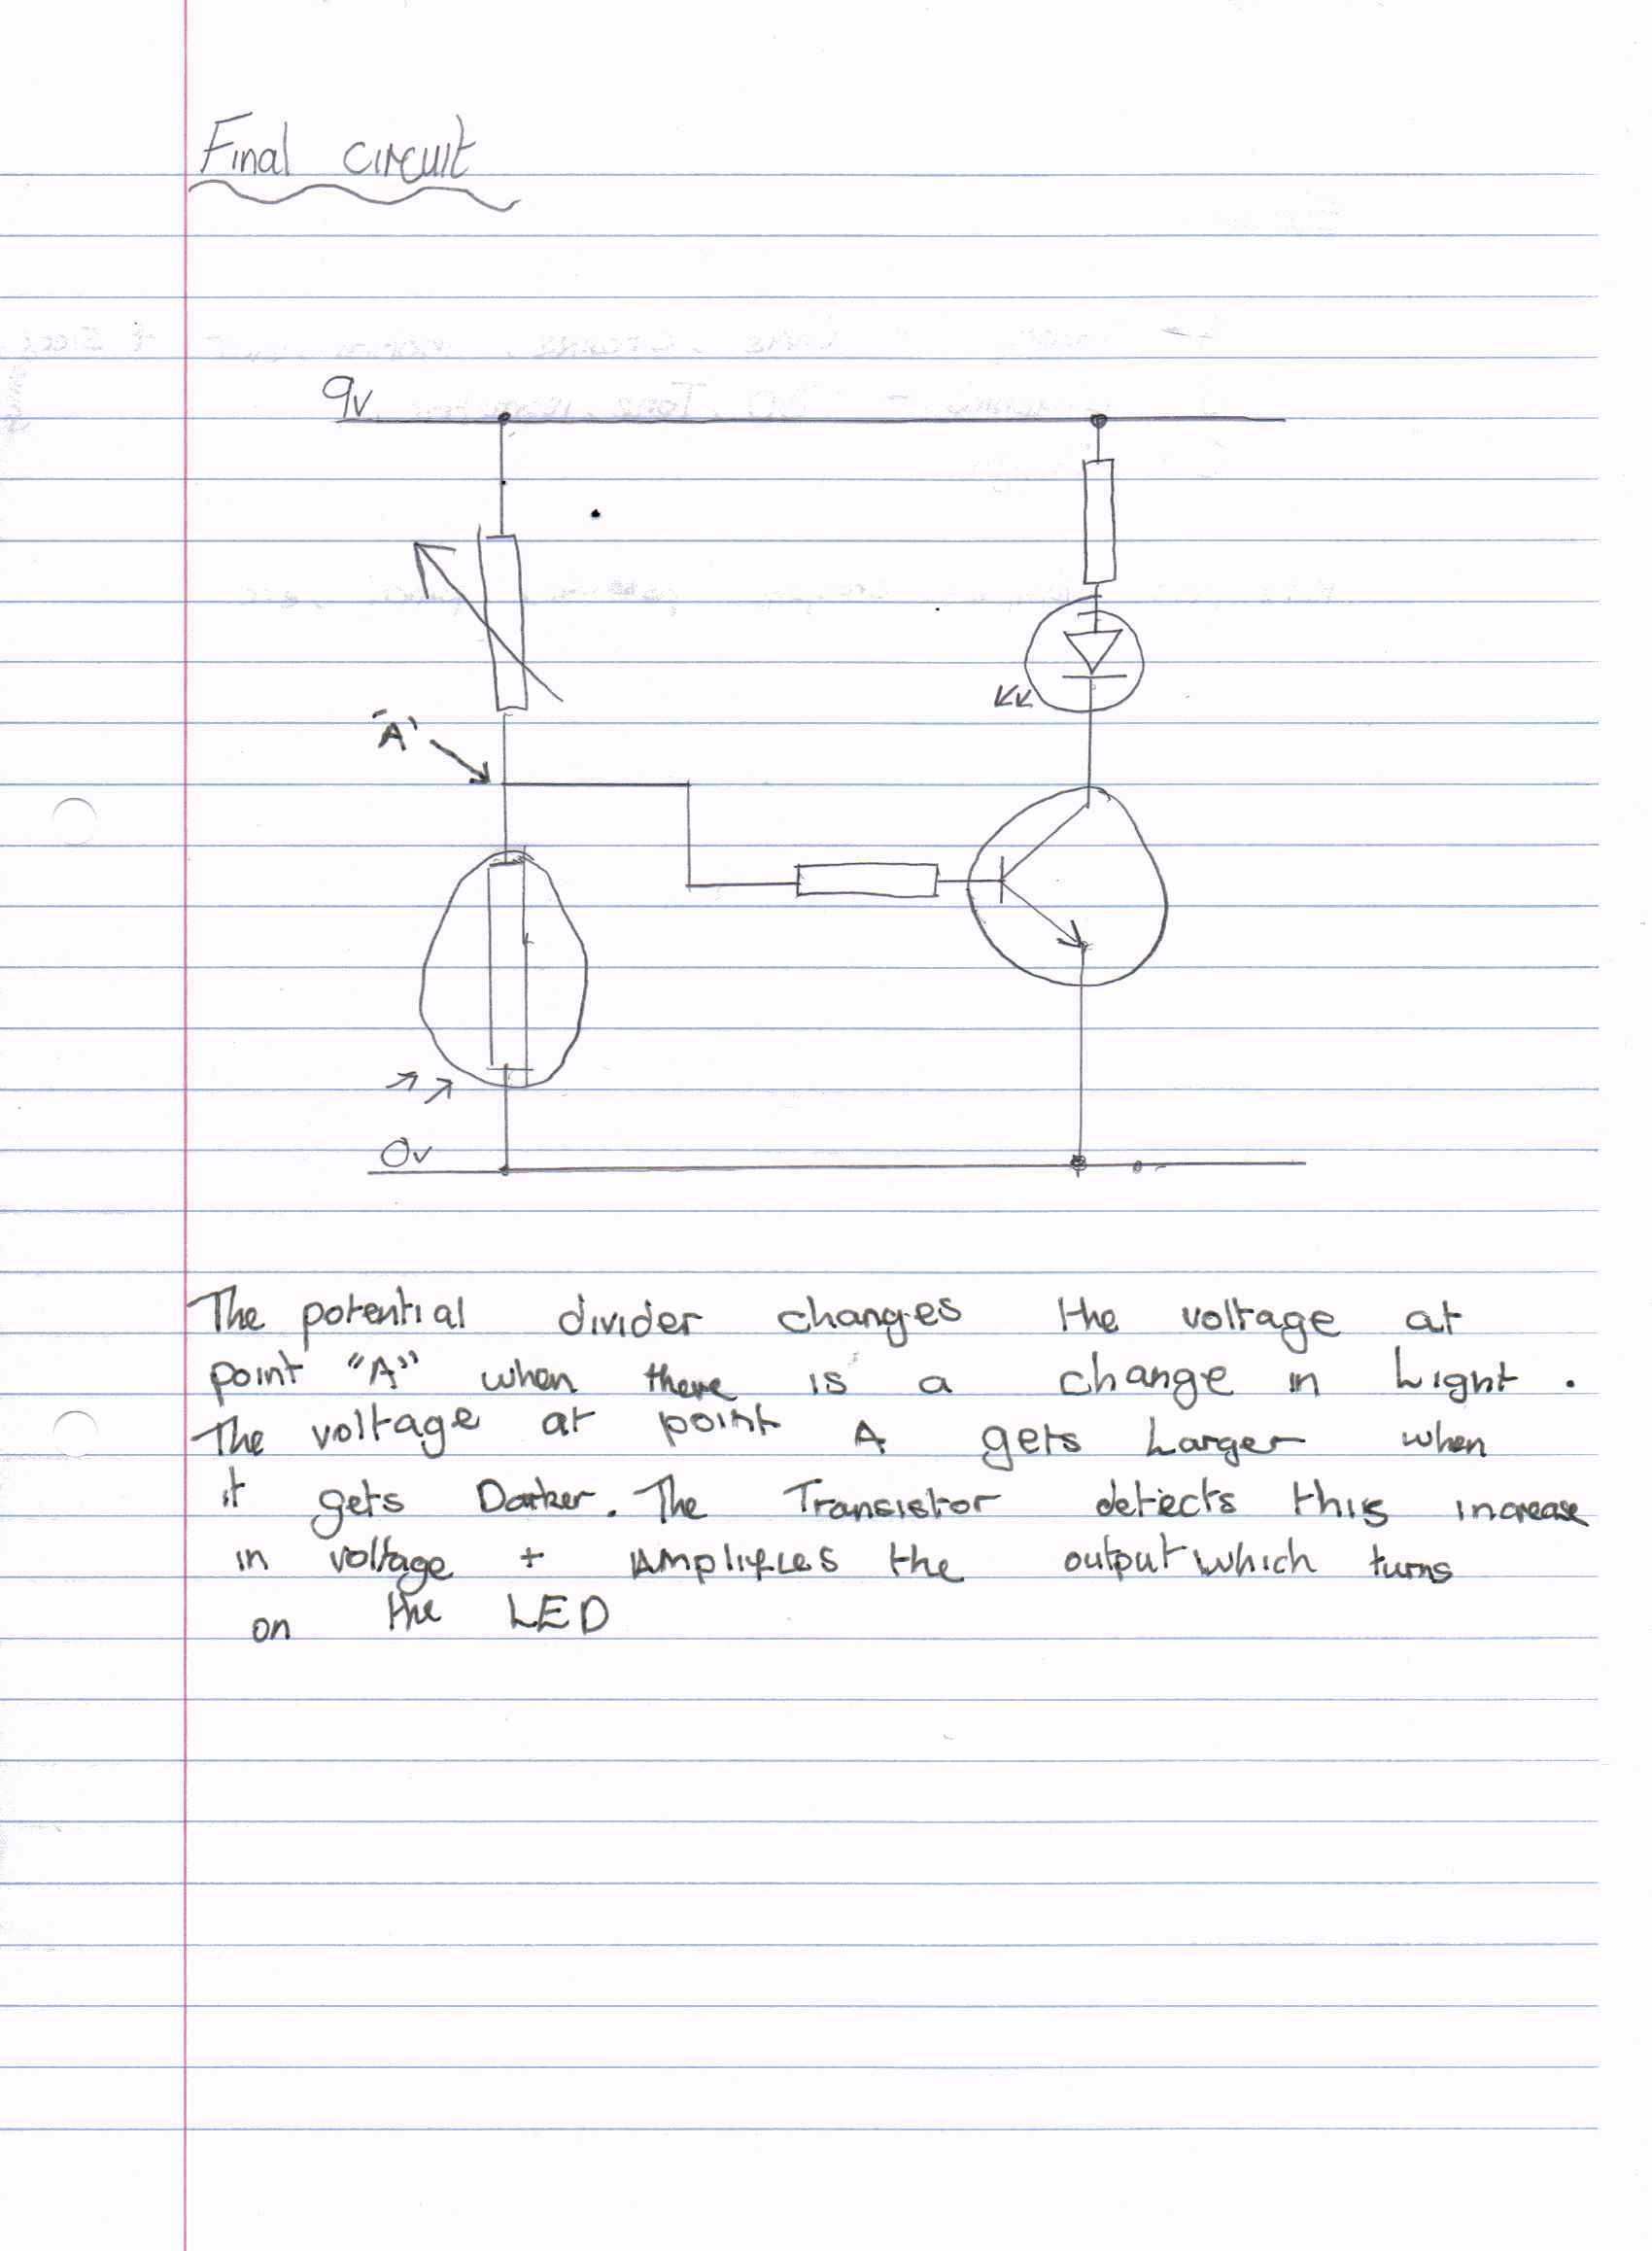 Final circuit
9v
"A"
0v
The potential divider changes the voltage at
point "A" when there is a change in Light.
The voltage at point A gets Larger when
it gets Darker. The Transistor detects this increase
in voltage + Amplifies the output which turns
on the LED